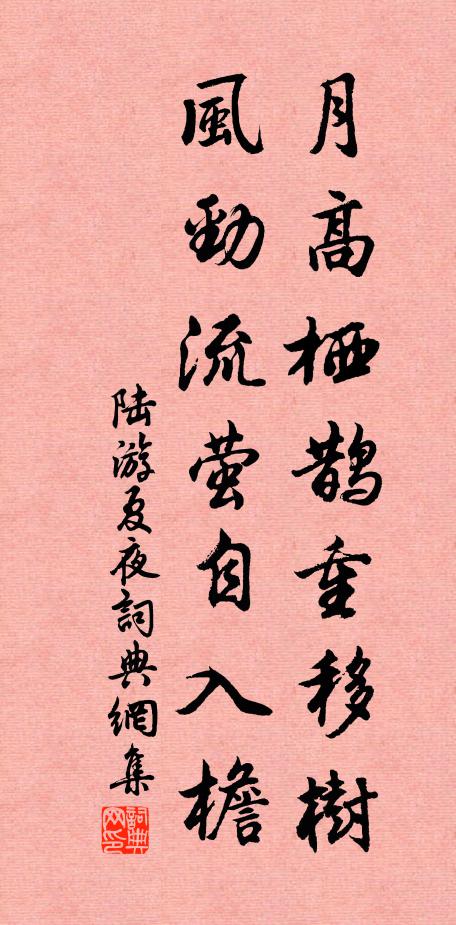 月高栖鹊重移樹
風勁流萤自入檐
陆游夏夜詞典網集
詞典网印